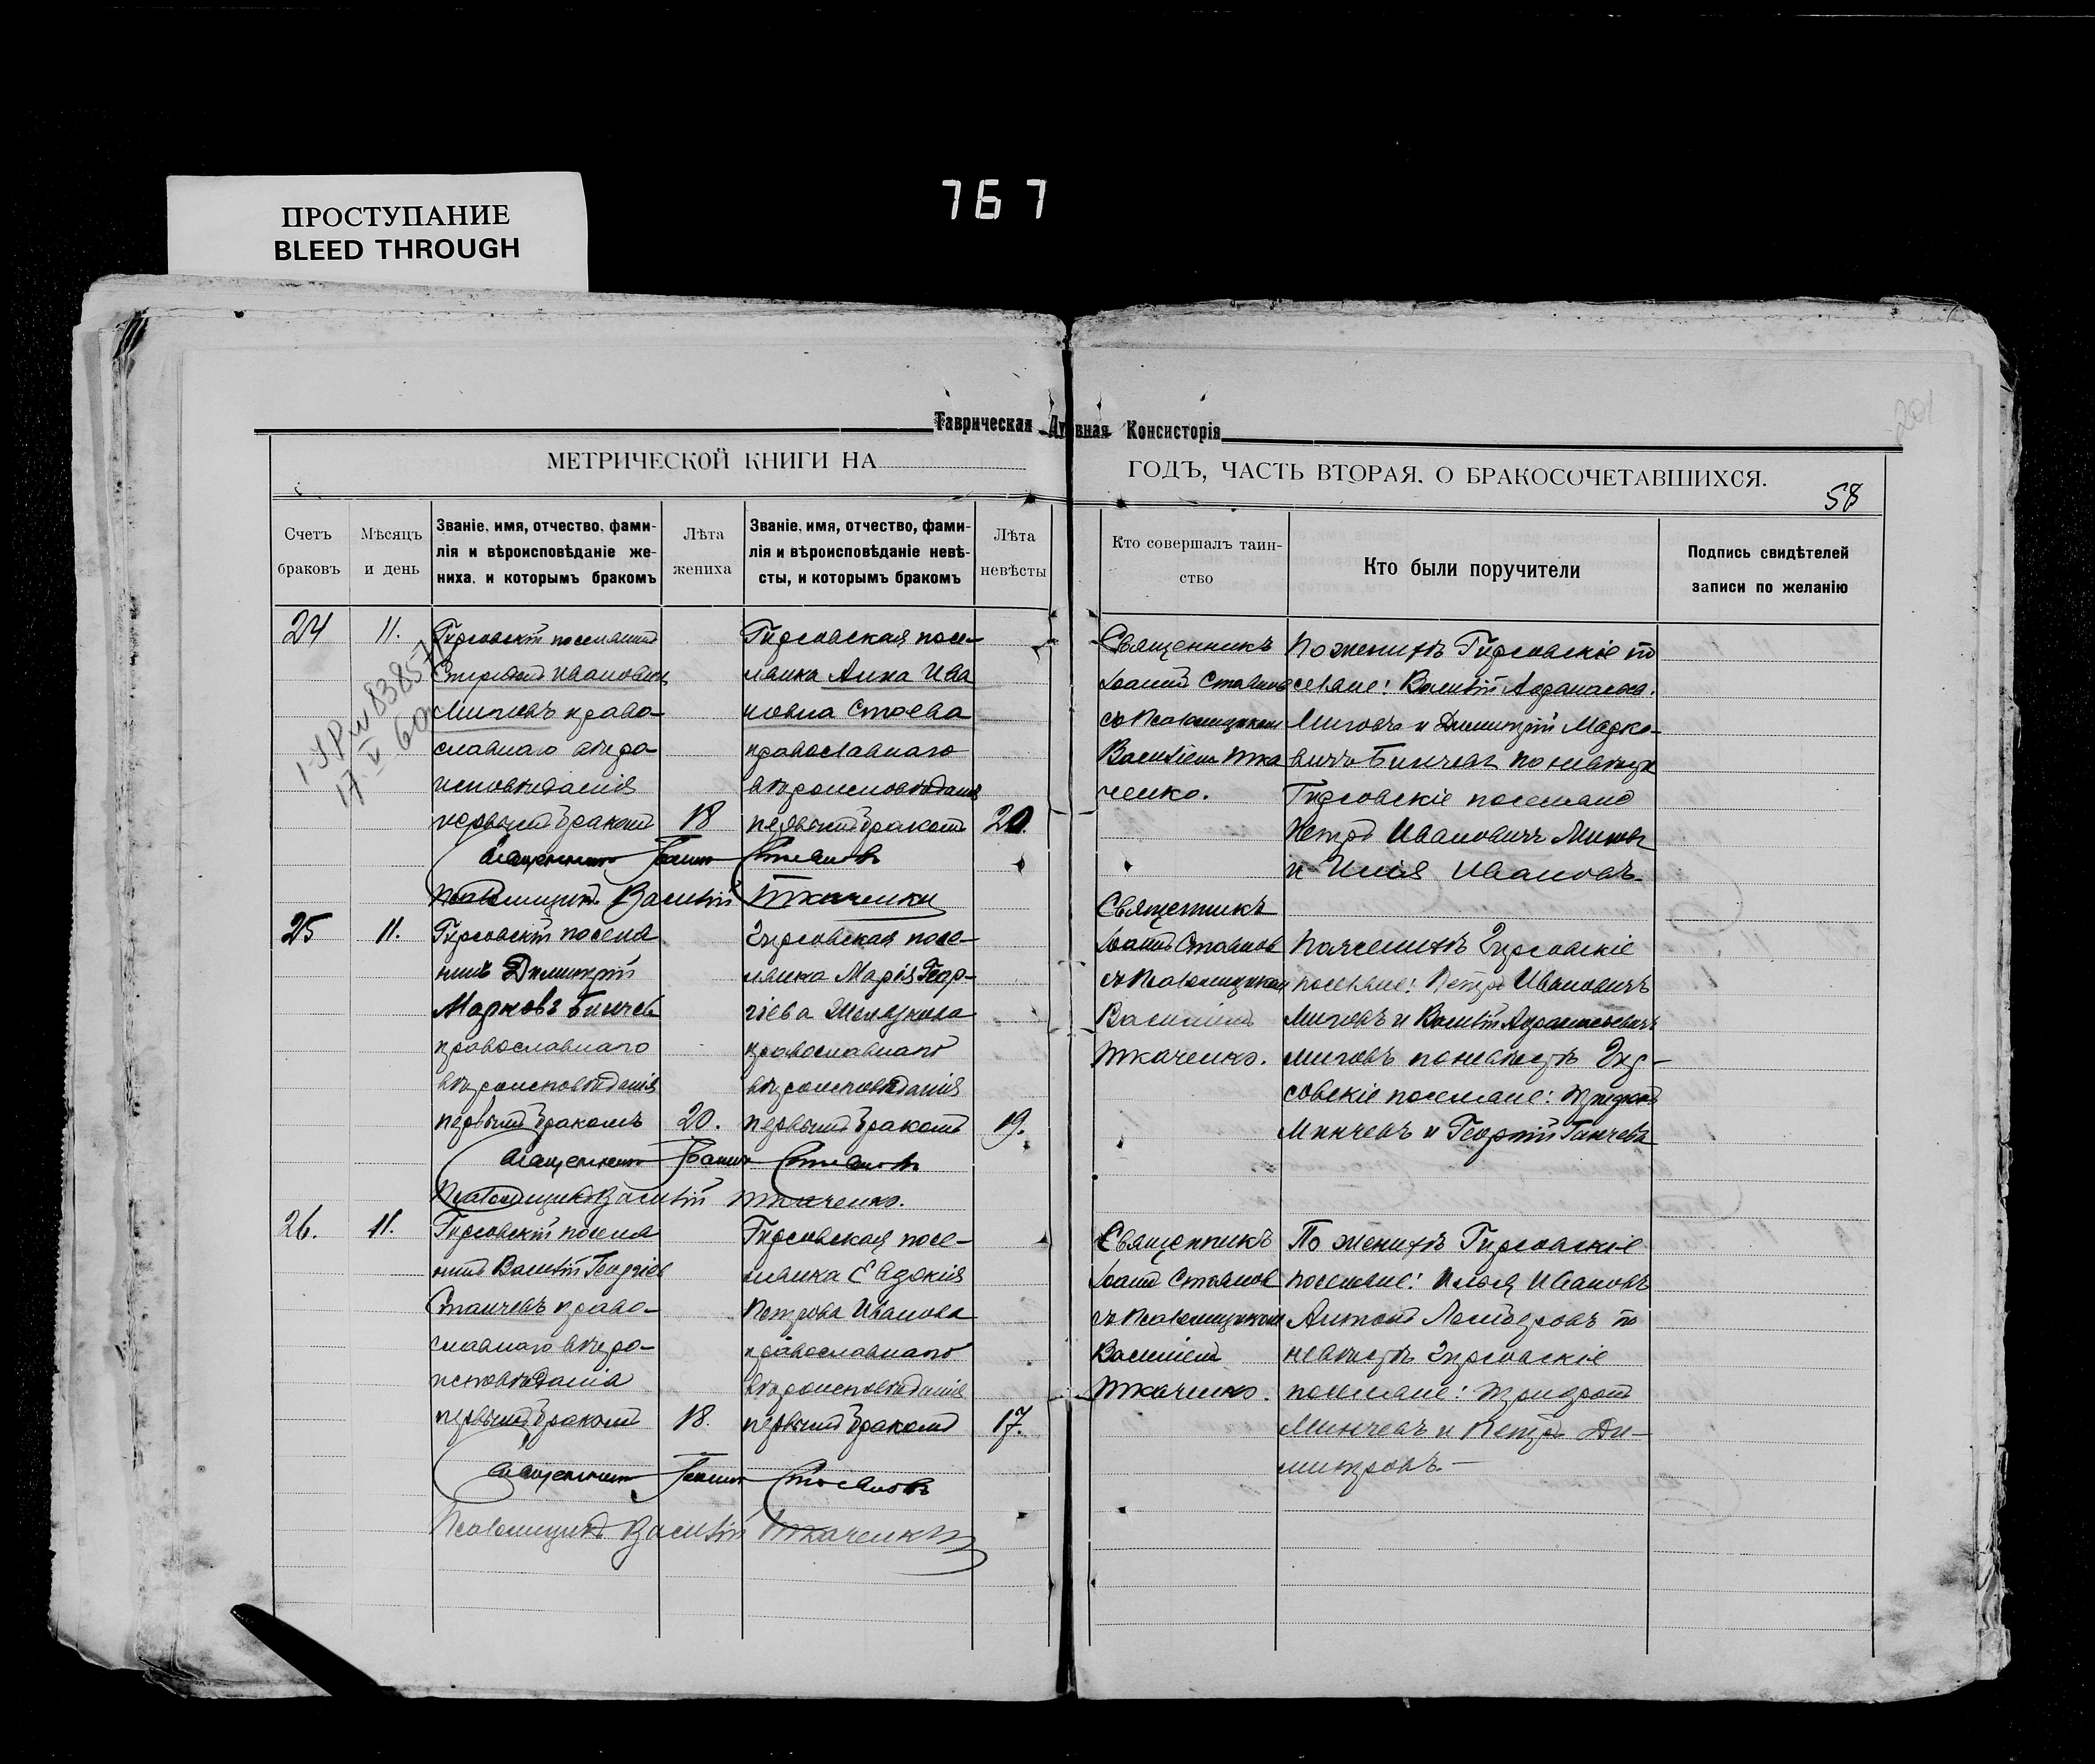 767
ПРОСТУПАНИЕ
BLEED THROUGH
Таврическая Духовная Консисторія
МЕТРИЧЕСКОЙ КНИГИ НА
ГОДЪ, ЧАСТЬ ВТОРАЯ, О БРАКОСОЧЕТАВШИХСЯ.
58
201
Счетъ браковъ
Мѣсяцъ и день
Званіе, имя, отчество, фами-
лія и вѣроисповѣданіе же-
ниха, и которымъ бракомъ
Лѣта жениха
Званіе, имя, отчество, фами-
лія и вѣроисповѣданіе невѣ-
сты, и которымъ бракомъ
Лѣта невѣсты
Кто совершалъ таин-
ство
Кто были поручители
Подпись свидѣтелей
записи по желанію
24
11.
Гирсовскій поселянинъ
Спиридонъ Ивановичъ
Митевъ право-
славнаго вѣро-
исповѣданія
первымъ бракомъ
18
Гирсовская посе-
лянка Анна Ива
новна Стоева
православнаго
вѣроисповѣданія
первымъ бракомъ
20.
Священникъ
Іоаннъ Стоянов
съ Псаломщикомъ
Василіемъ Тка
ченко.
По женихѣ Гирсовскіе по
селяне: Василій
и Димитрій Марко-
вичъ Бинчевъ по невѣстѣ
Гирсовскіе поселяне
Петръ Ивановичъ
и Илія Ивановъ
Священникъ Іоаннъ Стояновъ
Псаломщикъ Василій Ткаченко
25
11.
Гирсовскій поселя
нинъ Димитрій
Марковъ Бинчев
православнаго
вѣроисповѣданія
первымъ бракомъ
20.
Гирсовская посе-
лянка Марія Геор-
гіева Желязкова
православнаго
вѣроисповѣданія
первымъ бракомъ
19.
Священникъ
Іоаннъ Стоянов
съ Псаломщикомъ
Василіемъ
Ткаченко.
По женихѣ Гирсовскіе
поселяне: Петръ Ивановичъ
Митевъ и Василій
по невѣстѣ Гир-
совскіе поселяне:
Минчевъ и Георгій Ганчевъ
Священникъ Іоаннъ Стояновъ
Псаломщикъ Василій Ткаченко.
26.
11.
Гирсовскій поселя
нинъ Василій Георгіев
Станчевъ право-
славнаго вѣро-
исповѣданія
первымъ бракомъ
18.
Гирсовская посе-
лянка Евдокія
Петрова Иванова
православнаго
вѣроисповѣданія
первымъ бракомъ
17.
Священникъ
Іоаннъ Стоянов
съ Псаломщикомъ
Василіемъ
Ткаченко.
По женихѣ Гирсовскіе
поселяне: Илья Ивановъ
Антонъ по
невѣстѣ Гирсовскіе
поселяне:
Минчевъ и Петръ Ди-
митровъ.
Священникъ Іоаннъ Стояновъ
Псаломщикъ Василій Ткаченко